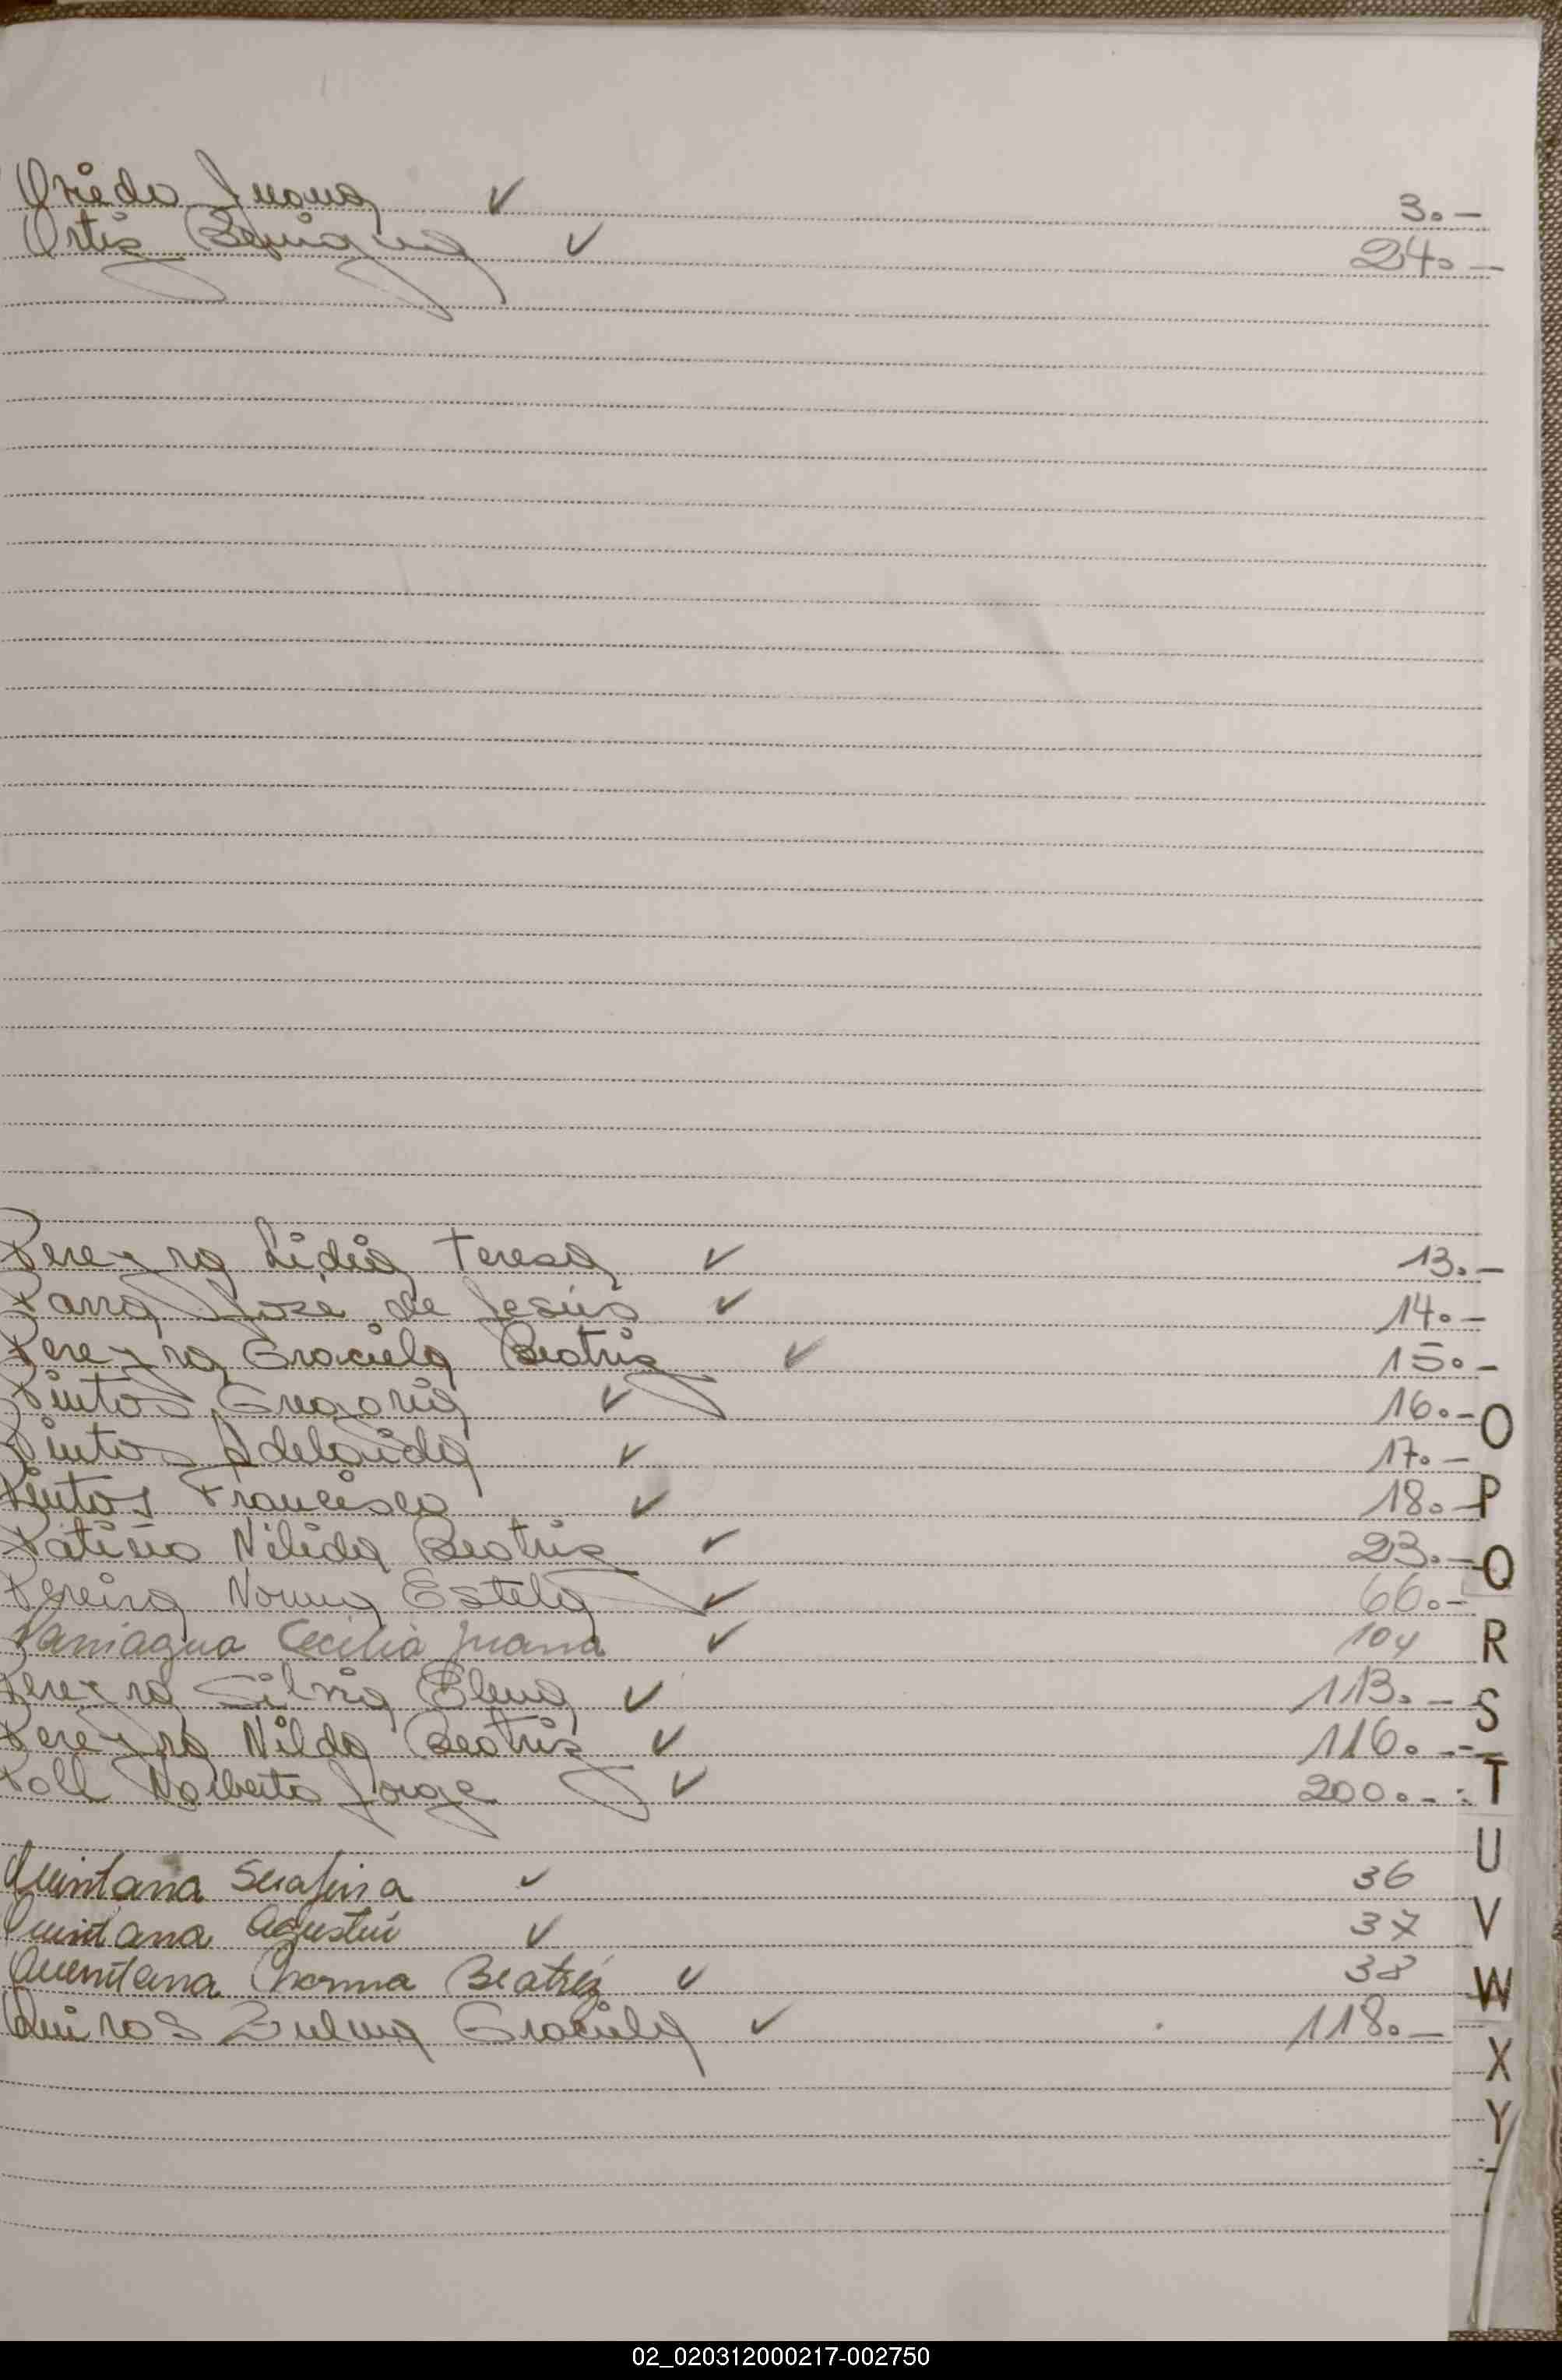 Oviedo Juana ✓ 3.-
Ortiz Benigna ✓ 24.-
Pereyra Lidia Teresa ✓ 13.-
Parra Jose de Jesús ✓ 14.-
Pereyra Graciela Beatriz ✓ 15.-
Pintos Gregoria ✓ 16.-
Pintos Adelaida ✓ 17.-
Pintos Francisco ✓ 18.-
Patiño Nélida Beatriz ✓ 23.-
Pereira Norma Estela ✓ 66.-
Paniagua Cecilia Juana ✓ 104
Pereyra Silvia Elena ✓ 113.-
Pereyra Nilda Beatriz ✓ 116.-
Poll Norberto Jorge ✓ 200.-
Quintana Serafina ✓ 36
Quintana Agustin ✓ 37
Quintana Norma Beatriz ✓ 38
Quiros Zulma Graciela ✓ 118.-
O
P
Q
R
S
T
U
V
W
X
Y
02_020312000217-002750